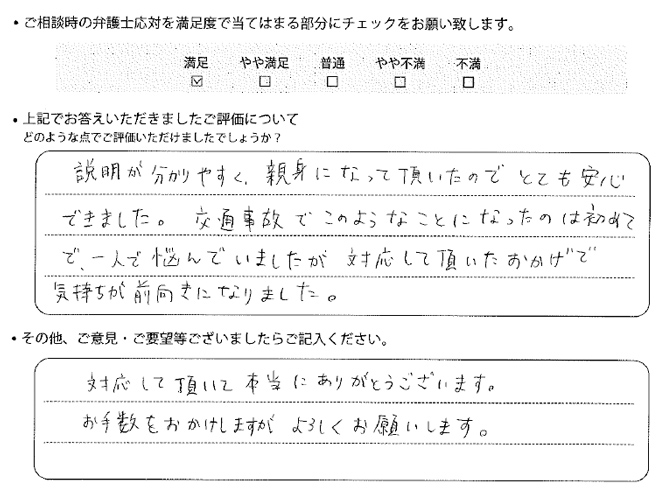 ・ご相談時の弁護士応対を満足度で当てはまる部分にチェックをお願い致します。
満足 やや満足 普通 やや不満 不満
☑ □ □ □ □
・上記でお答えいただきましたご評価について
どのような点でご評価いただけましたでしょうか？
説明が分かりやすく、親身になって頂いたのでとても安心
できました。交通事故でこのようなことになったのは初めて
で、一人で悩んでいましたが対応して頂いたおかげで
気持ちが前向きになりました。
・その他、ご意見・ご要望等ございましたらご記入ください。
対応して頂いて本当にありがとうございます。
お手数をおかけしますがよろしくお願いします。